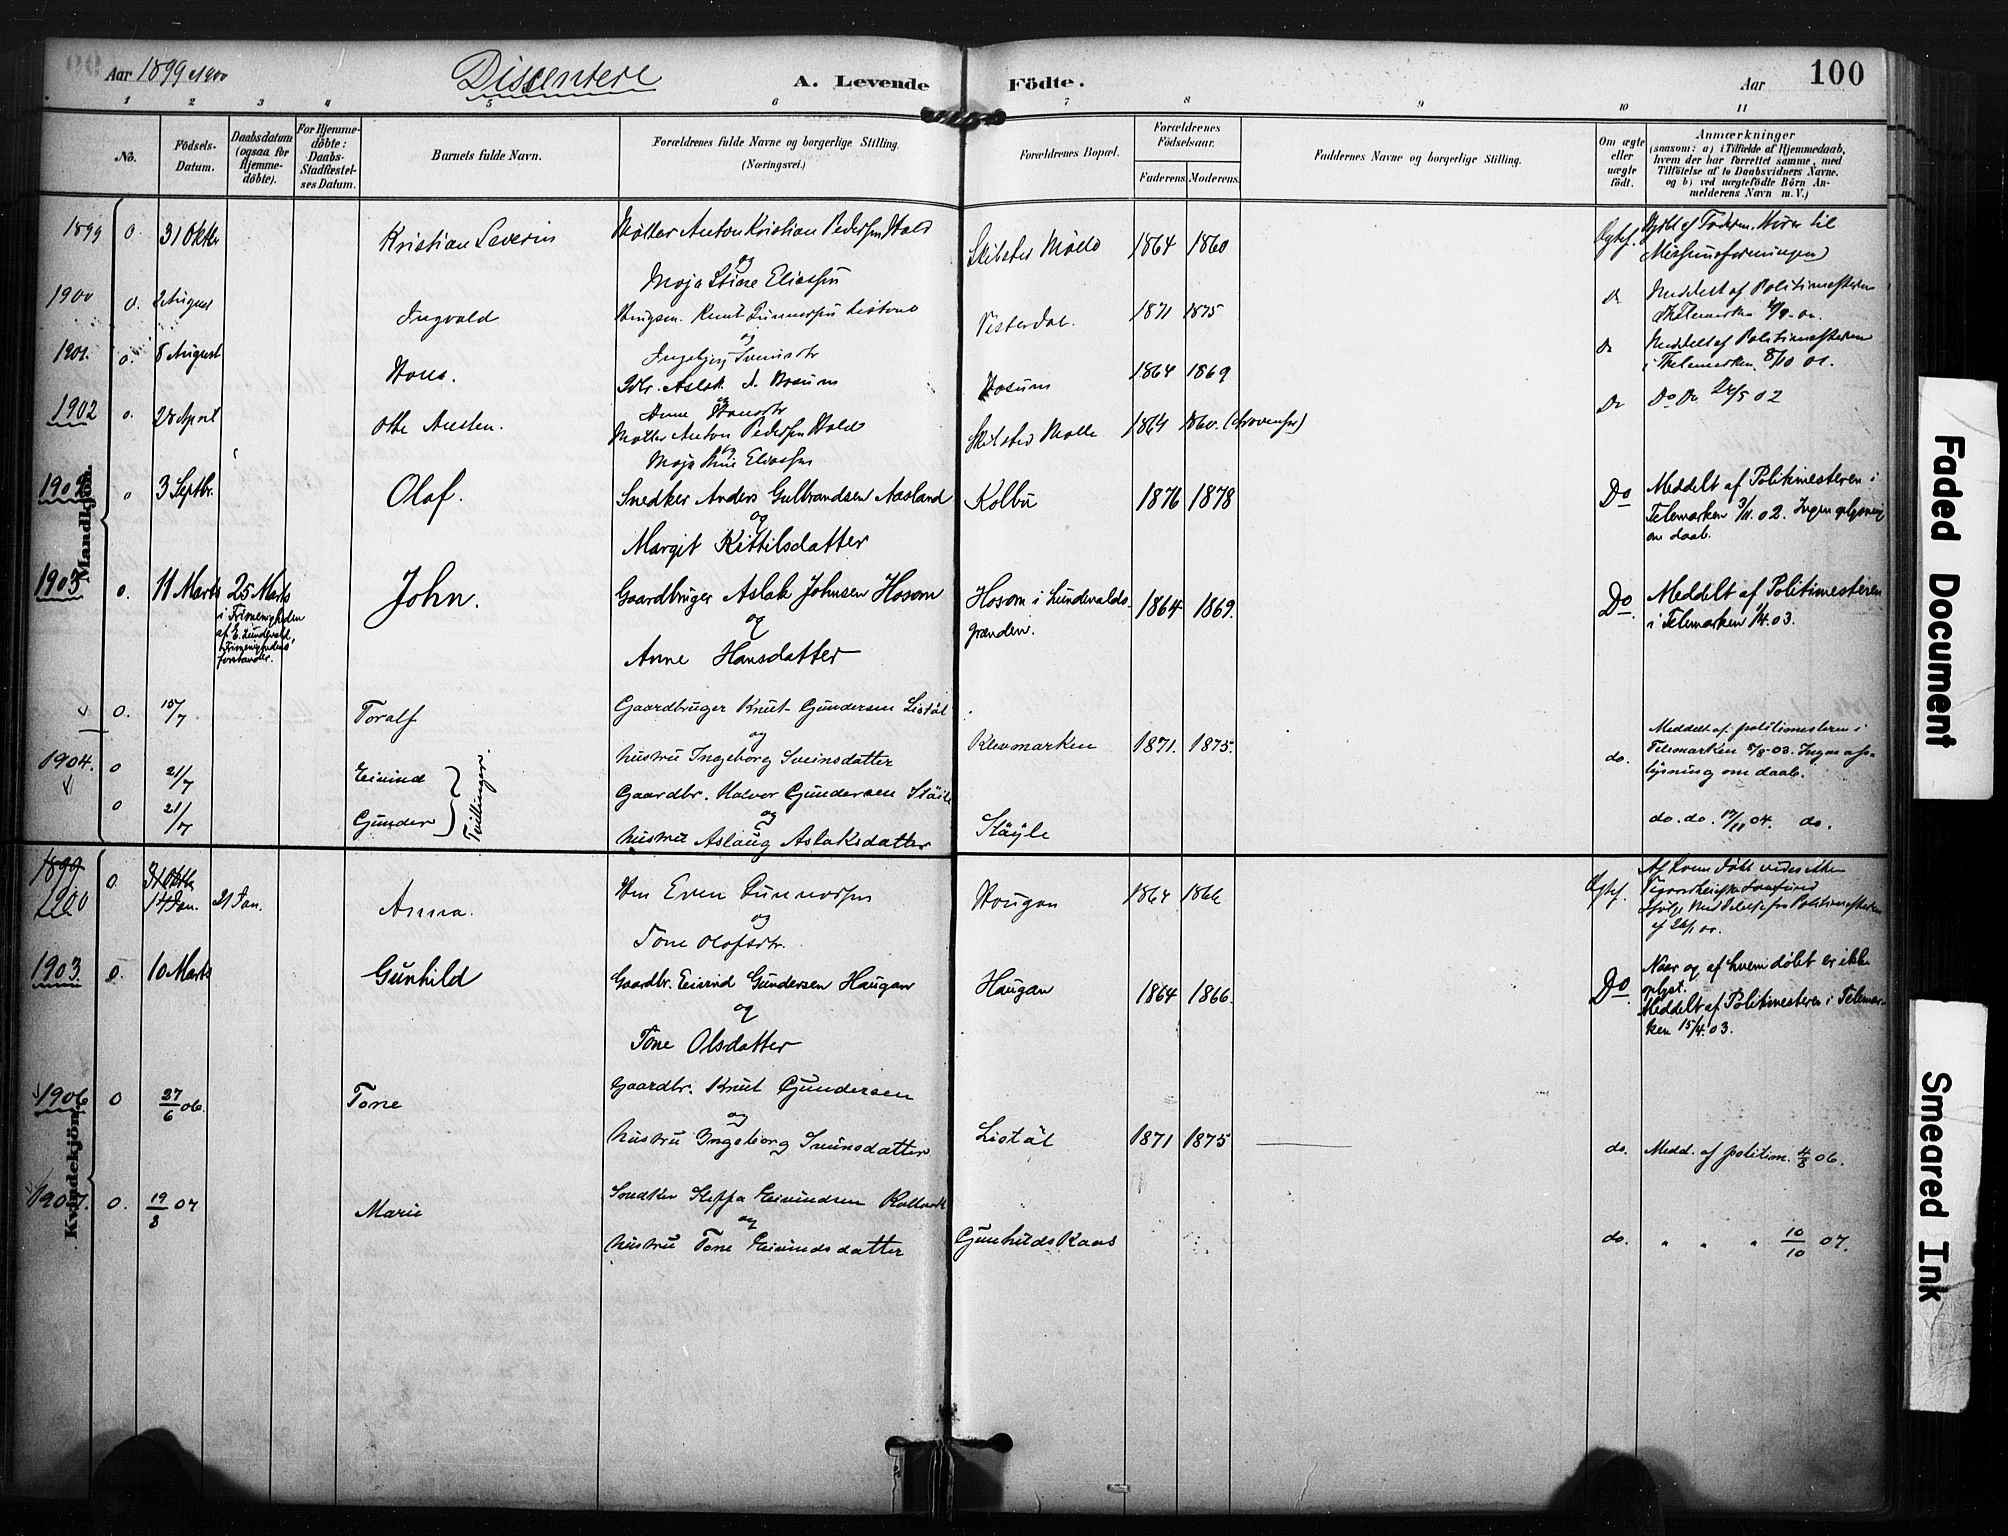 Aar 1899 & 1900 Dissentere A. Levende Födte. Aar 100
1 2 3 4 5 6 7 8 9 10 11
No.
Födsels-
Datum.
Daabsdatum
(ogsaa for
Hjemme-
döbte).
For Hjemme-
döbte:
Daabs-
Stadfæstel-
ses Datum.
Barnets fulde Navn.
Forældrenes fulde Navne og borgerlige Stilling.
(Næringsvei.)
Forældrenes Bopæl.
Forældrenes
Födselsaar.
Faderens. Moderens.
Faddernes Navne og borgerlige Stilling.
Om ægte
eller
uægte
födt.
Anmærkninger
(saasom: a) i Tilfælde af Hjemmedaab,
hvem der har forrettet samme, med
Tilföielse af to Daabsvidners Navne.
og b) ved uægtefödte Börn An-
melderens Navn m. V.)
Mandkjön.
1899 0 31 Oktbr Kristian Severin Møller Anton Kristian Pedersen Hold
og
Maja Stine Eliassen
Skilster Mølle 1864 1860 Egtef.
Missionsforeningen
1900 0. 2 August Ingvald Knut Gunnersen
og
Ingebjørg Sveinsdtr
Vesterdal. 1871 1875 Do Meddelt af Politimesteren
i Thelemarken
1901. 0. 8 August Hans. Gbr. Aslak A. Hosum
og
Anne Hansdtr
Hosum 1864 1869 Do Meddelt af Politimesteren
i Thelemarken 8/10 01.
1902 0. 28 April Otto Austen. Møller Anton Pedersen Hold
og
Maja Stine Eliassen
Skilster Mølle 1864 1860. Do Do Do 24/5 02
1902 0 3 Septbr. Olaf. Snedker Anders Gulbrandsen Aasland
og
Margit Kittilsdatter
Kolbu 1876 1878 Do Meddelt af Politimesteren i
Telemarken 3/11. 02. Ingen oplysning
om daab.
1903 0. 11 Marts 25 Marts
i Frimenigheden
af E. Lundevald,
Frimenighedens
forstander.
John. Gaardbruger Aslak Johnsen Hosom
og
Anne Hansdatter
Hosom i Lundevalds-
grænden.
1864 1869. Do. Meddelt af Politimesteren
i Telemarken 1/4. 03.
0. 15/7 Toralf Gaardbruger Knut Gundersen Listøl
og
hustru Ingeborg Sveinsdatter
Klevmarken 1871. 1875. do. Meddelt af politimesteren i
Telemarken 8/8-03. Ingen op-
lysning om daab.
1904. 0 21/7 Eivind
0 21/7 Gunder
Tvillinger.
Gaardbr. Halvor Gundersen Støile
og
hustru Aslaug Aslaksdatter
Støyle do. do. 17/11 04. do.
Kvindekjön.
1899
1900 0. 31 Oktbr
14 Jan. 21 Jan. Anna. Even Gunnersen
og
Tone Olafsdtr.
Hougan 1864 1866 Egtef.
1903 0. 10 Marts Gunhild Gaardbr. Eivind Gundersen Haugan
og
Tone Olsdatter
Haugan 1864 1866. Do Naar og af hvem døbt er ikke
oplyst.
Meddelt af Politimesteren i Telemar-
ken 15/4. 03.
1906 0 27/6 06. Tone Gaardbr. Knut Gundersen
og
hustru Ingeborg Sveinsdatter
Listøl 1871 1875 do. Medd. af politim. 4/8 06.
1907. 0. 19/8 07 Marie Snedker Keppa Eivindsen
og
hustru Tone Eivindsdatter
Gunhilds Kaas do. " " " 10/10 07.
Faded Document
Smeared Ink